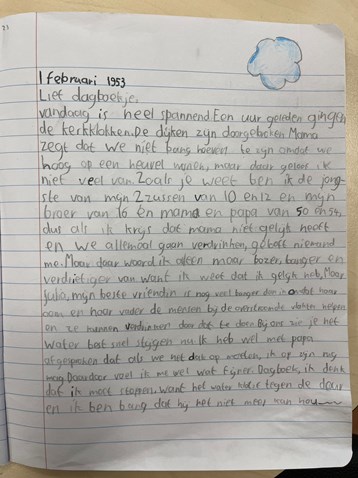 1 februari 1953
Lief dagboekje,
vandaag is heel spannend. Een uur geleden gingen
de kerkklokken. De dijken zijn doorgebroken. Mama
zegt dat we niet bang hoeven te zijn omdat we
hoog op een heuvel wonen, maar daar geloof ik
niet veel van. Zoals je weet ben ik de jong-
ste van mijn 2 zussen van 10 en 12 en mijn
broer van 16 en mama en papa van 50 en 54,
dus als ik krijs dat mama niet gelijk heeft
en we allemaal gaan verdrinken, gelooft niemand
me. Maar daar woord ik alleen maar bozer, banger en
verdrietiger van. Want ik weet dat ik gelijk heb. Maar
Julia, mijn beste vriendin is nog veel banger dan ik omdat haar
oom en haar vader de mensen bij de overstroomde helpen
en ze kunnen verdrinken door dat te doen. Bij ons zie je het
water best snel stijgen nu. Ik heb wel met papa
afgesproken dat als we het dak op moeten, ik op zijn rug
mag. Daardoor voel ik me wel wat fijner. Dagboek, ik denk
dat ik moet stoppen, want het water tegen de deur
en ik ben bang dat hij het niet meer kan hou